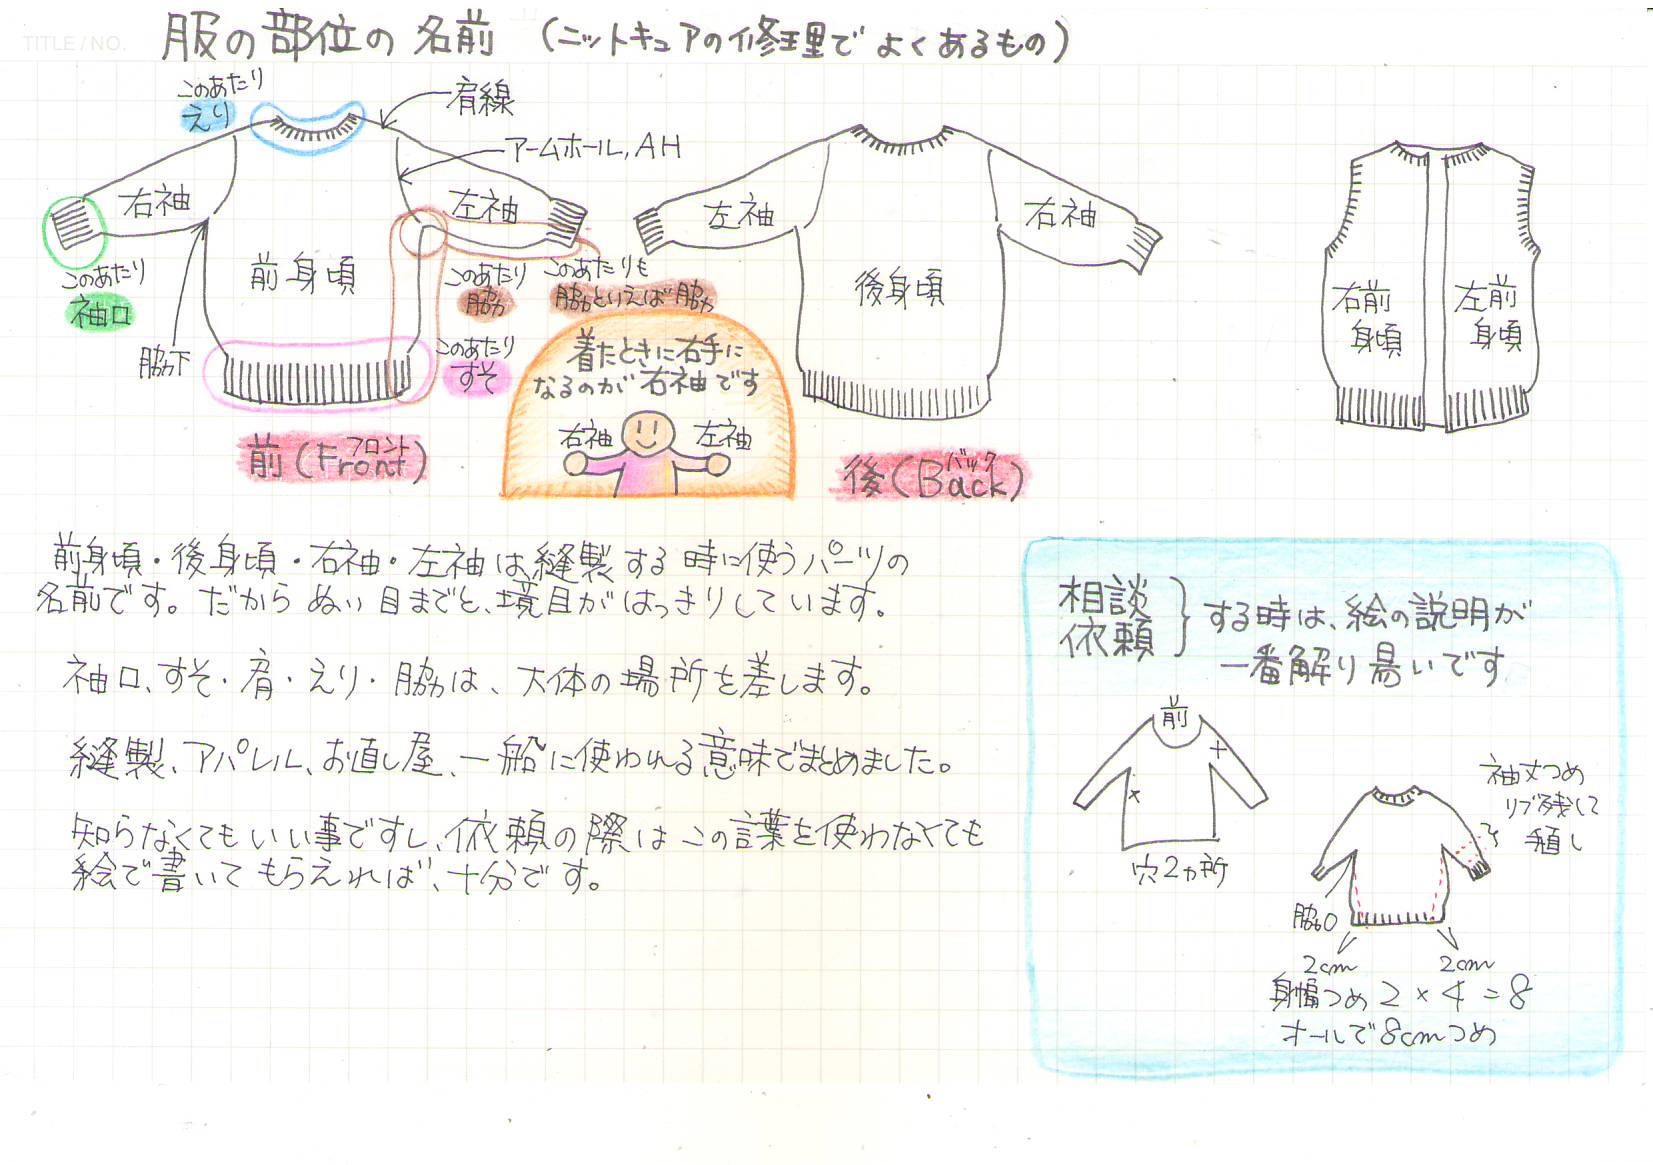 TITLE/NO.
服の部位の名前 (ニットキュアの修理でよくあるもの)
このあたり
えり
肩線
アームホール, AH
右袖
左袖
前身頃
このあたり
袖口
脇下
このあたり
脇
このあたりも
脇といえば脇
このあたり
すそ
前(Front)
フロント
着たときに右手に
なるのが右袖です
右袖
左袖
左袖
右袖
後身頃
後(Back)
バック
右前
身頃
左前
身頃
前身頃・後身頃・右袖・左袖は、縫製する時に使うパーツの
名前です。だからぬい目までと、境目がはっきりしています。
袖口、すそ・肩・えり・脇は、大体の場所を差します。
縫製、アパレル、お直し屋、一船に使われる意味でまとめました。
知らなくてもいい事ですし、依頼の際はこの言葉を使わなくても
絵で書いてもらえれば、十分です。
相談
依頼
する時は、絵の説明が
一番解り易いです
前
穴2ヵ所
袖丈つめ
リブ残して
直し
脇0
2cm
2cm
身幅つめ 2×4=8
オールで8cmつめ